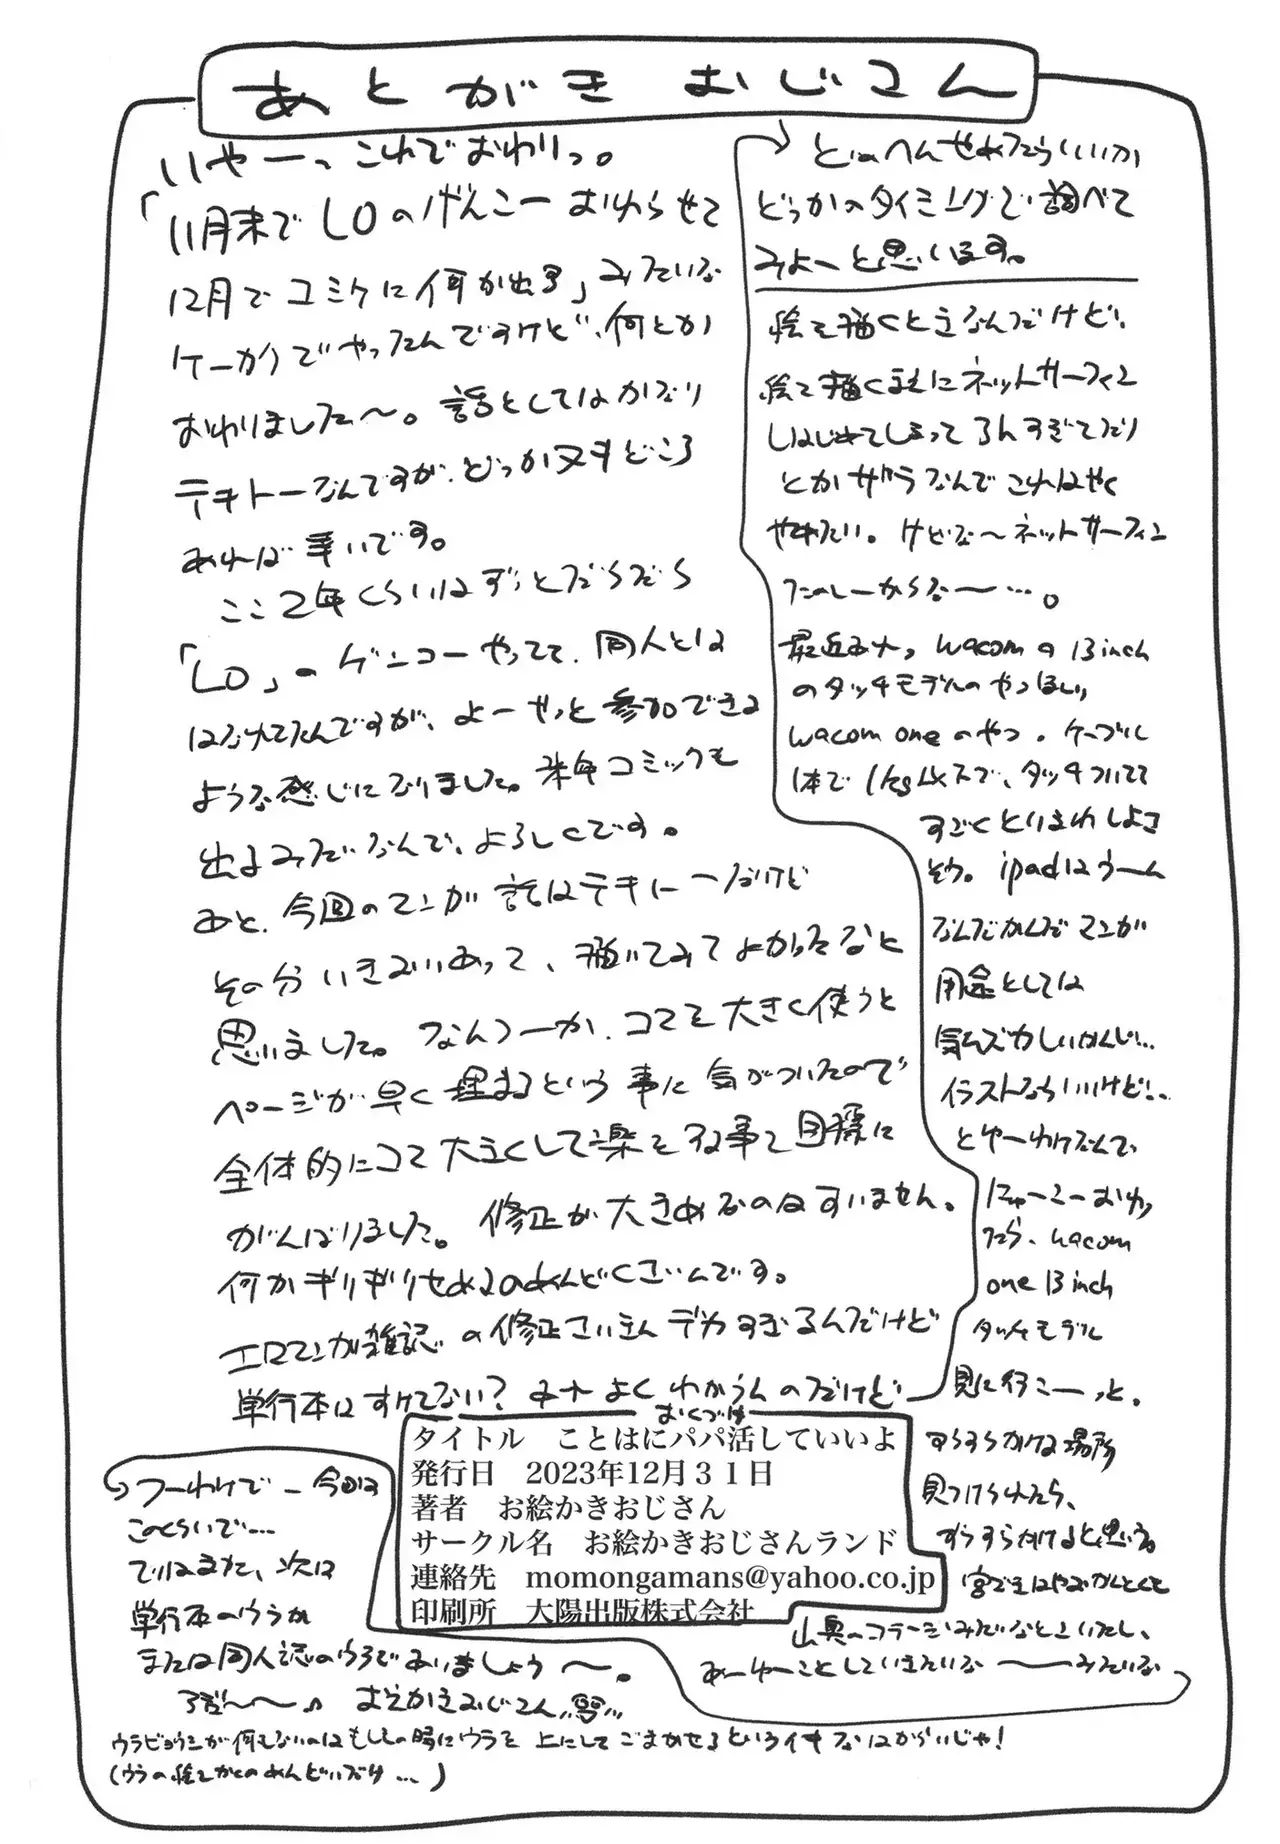 あとがき おじさん
いやーっこれでおわりっ。
「11月末でLOのげんこーおわらせて
12月でコミケに何か出す」みたいな
ケーカクでやってたんですけど、何とか
おわりました〜。話としてはかなり
テキトーなんですが、どっか又すどころ
あれば幸いです。
ここ2年くらいはずっとだらだら
「LO」のゲンコーやってて、同人とは
はなれてたんですが、よーやっと参加できる
ような感じになりました。来年コミックも
出るみたいなんで、よろしくです。
あと、今回のマンガ話はテキトーだけど
その分いきおいあって、描いてみてよかったなと
思いました。なんつーか、コマを大きく使うと
ページが早く埋まるという事に気がついたので
全体的にコマ大きくして楽をする事を目標に
がんばりました。修正が大きめなのはすいません。
何かギリギリせめるのめんどくさいんです。
エロマンガ雑誌の修正さいきんデカすぎるんだけど
単行本はすけてない?よくわかうんのだけど
どのへんせめたらいいか
どっかのタイミングで調べて
みよーと思います。
絵を描くときなんだけど、
絵を描くまえにネットサーフィン
はじめてしまって
とかザラなんでこれはやく
やめたい。けどな〜ネットサーフィン
たのしーからな〜…。
最近wacomの13inch
のタッチモデルのやつほしい
wacom oneのやつ。ケーブル
1本で1kg以下で、タッチついてて
すごくとりまわしよさ
そう。ipadはうーん
なんだかんだマンガ
用途としては
気むずかしいかんじ…
イラストならいいけど…
とゆーわけなんで、
にゅーこーおわっ
たら、wacom
one 13inch
タッチモデル
見に行こーっと。
すらすらかける場所
見つけられたら、
すらすらかけると思う。
山奥のコテージみたいなとこいたし、
あーゆーことしていきたいな〜みたいな
つーわけで 今回は
このくらいで…
ではまた、次は
単行本のウラか
または同人誌のウラであいましょう〜。
おえかきおじさん
ウラビョウシが何もないのはもしもの時にウラを上にしてごまかせるというイキなはからいじゃ!
(ウラの絵をかくのめんどいだけ…)
おくづけ
タイトル ことはにパパ活していいよ
発行日 2023年12月31日
著者 お絵かきおじさん
サークル名 お絵かきおじさんランド
連絡先 momongamans@yahoo.co.jp
印刷所 大陽出版株式会社